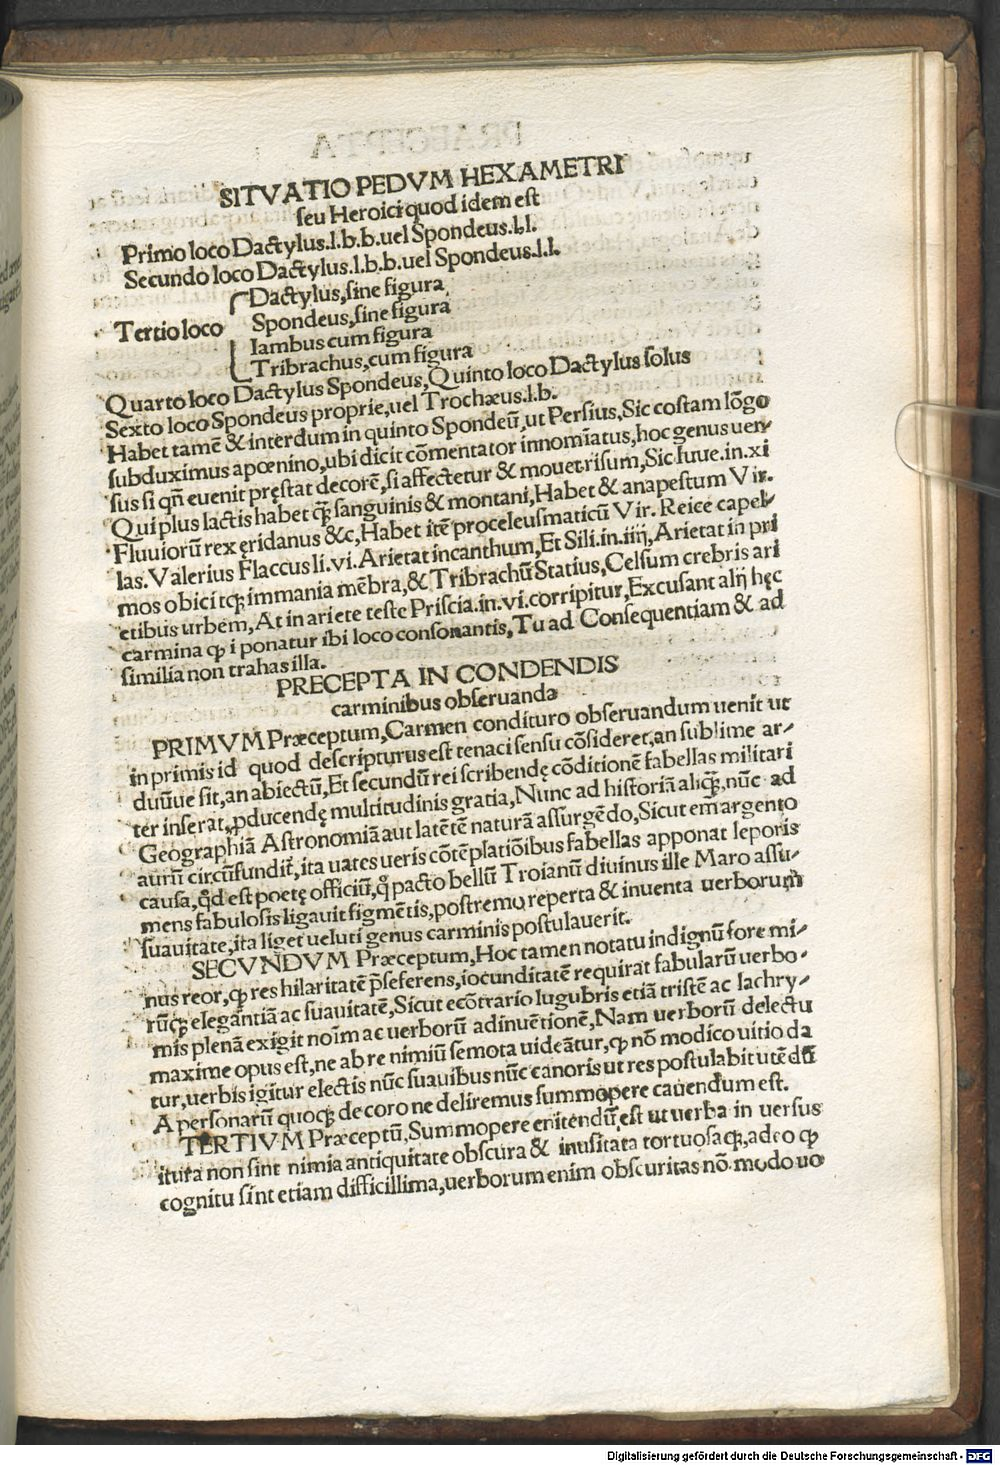 SITVATIO PEDVM HEXAMETRI
seu Heroici quod idem est
Primo loco Dactylus.l.b.b.uel Spondeus.l.l.
Secundo loco Dactylus.l.b.b.uel Spondeus.l.l.
Dactylus,sine figura
Tertio loco Spondeus,sine figura
Iambus cum figura
Tribrachus,cum figura
Quarto loco Dactylus Spondeus,Quinto loco Dactylus solus
Sexto loco Spondeus proprie,uel Trochæus.l.b.
Habet tamē & interdum in quinto Spondeū,ut Persius,Sic costam lōgo
subduximus apœnino,ubi dicit cōmentator innomīatus,hoc genus uer-
sus si qñ euenit pręstat decorē,si affectetur & mouet risum,Sic Iuue.in.xi
Qui plus lactis habet qȝ sanguinis & montani,Habet & anapestum Vir.
Fluuiorū rex ęridanus &c,Habet itē proceleusmaticū Vir. Reice capel-
las. Valerius Flaccus li.vi.Arietat incanthum,Et Sili.in.iiij,Arietat in pri
mos obicitqȝ immania mēbra,& Tribrachū Statius,Celsum crebris ari
etibus urbem,At in ariete teste Priscia.in.vi.corripitur,Excusant alij hęc
carmina ꝙ i ponatur ibi loco consonantis,Tu ad Consequentiam & ad
similia non trahas illa.
PRECEPTA IN CONDENDIS
carminibus obseruanda
PRIMVM Præceptum,Carmen condituro obseruandum uenit ut
in primis id quod descripturus est tenaci sensu cōsideret,an sublime ar-
duūue sit,an abiectū,Et secundū rei scribendę cōditionē fabellas militari
ter inserat,ꝓducendę multitudinis gratia,Nunc ad historiā aliqȝ,nūc ad
Geographiā Astronomiā aut latētē naturā assurgēdo,Sicut em̄ argento
aurū circūfundit̄,ita uates ueris cōtēplatiōibus fabellas apponat leporis
causa,qd̄ est poetę officiū,q̊ pacto bellū Troianū diuinus ille Maro assu-
mens fabulosis ligauit figmētis,postremo reperta & inuenta uerborum
suauitate,ita liget ueluti genus carminis postulauerit.
SECVNDVM Præceptum,Hoc tamen notatu indignū fore mi-
nus reor,ꝙ res hilaritatē p̄seferens,iocunditatē requirat fabularū uerbo-
rūqȝ elegantiā ac suauitatē,Sicut ecōtrario lugubris etiā tristē ac lachry-
mis plenā exigit noīm ac uerborū adinuētionē,Nam uerborū delectu
maxime opus est,ne ab re nimiū semota uideātur,ꝙ nō modico uitio da
tur,uerbis igitur electis nūc suauibus nūc canoris ut res postulabit utēdū
A personarū quoqȝ decoro ne deliremus summopere cauendum est.
TERTIVM Præceptū,Summopere enitendū est ut uerba in uersus
itura non sint nimia antiquitate obscura & inusitata tortuosaqȝ,adeo ꝙ
cognitu sint etiam difficillima,uerborum enim obscuritas nō modo uo
Digitalisierung gefördert durch die Deutsche Forschungsgemeinschaft - DFG